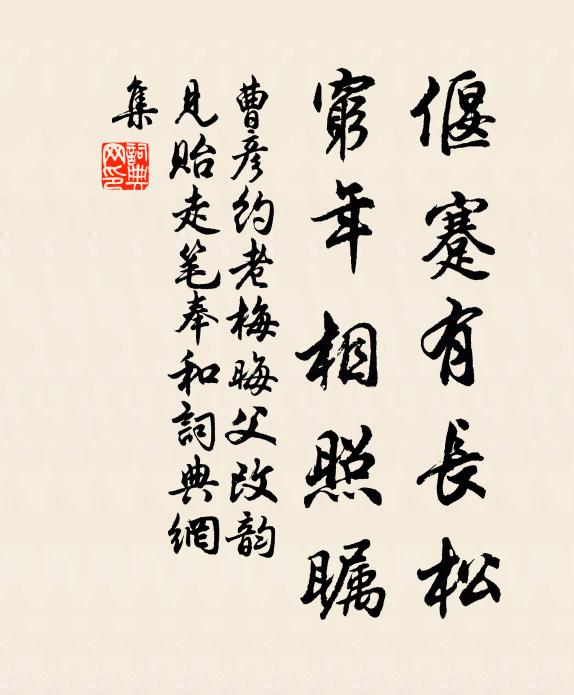 偃蹇有長松
窮年相照矚
曹彦约老梅晦父改韵
見贻走笔奉和詞典網
集
詞典
网印